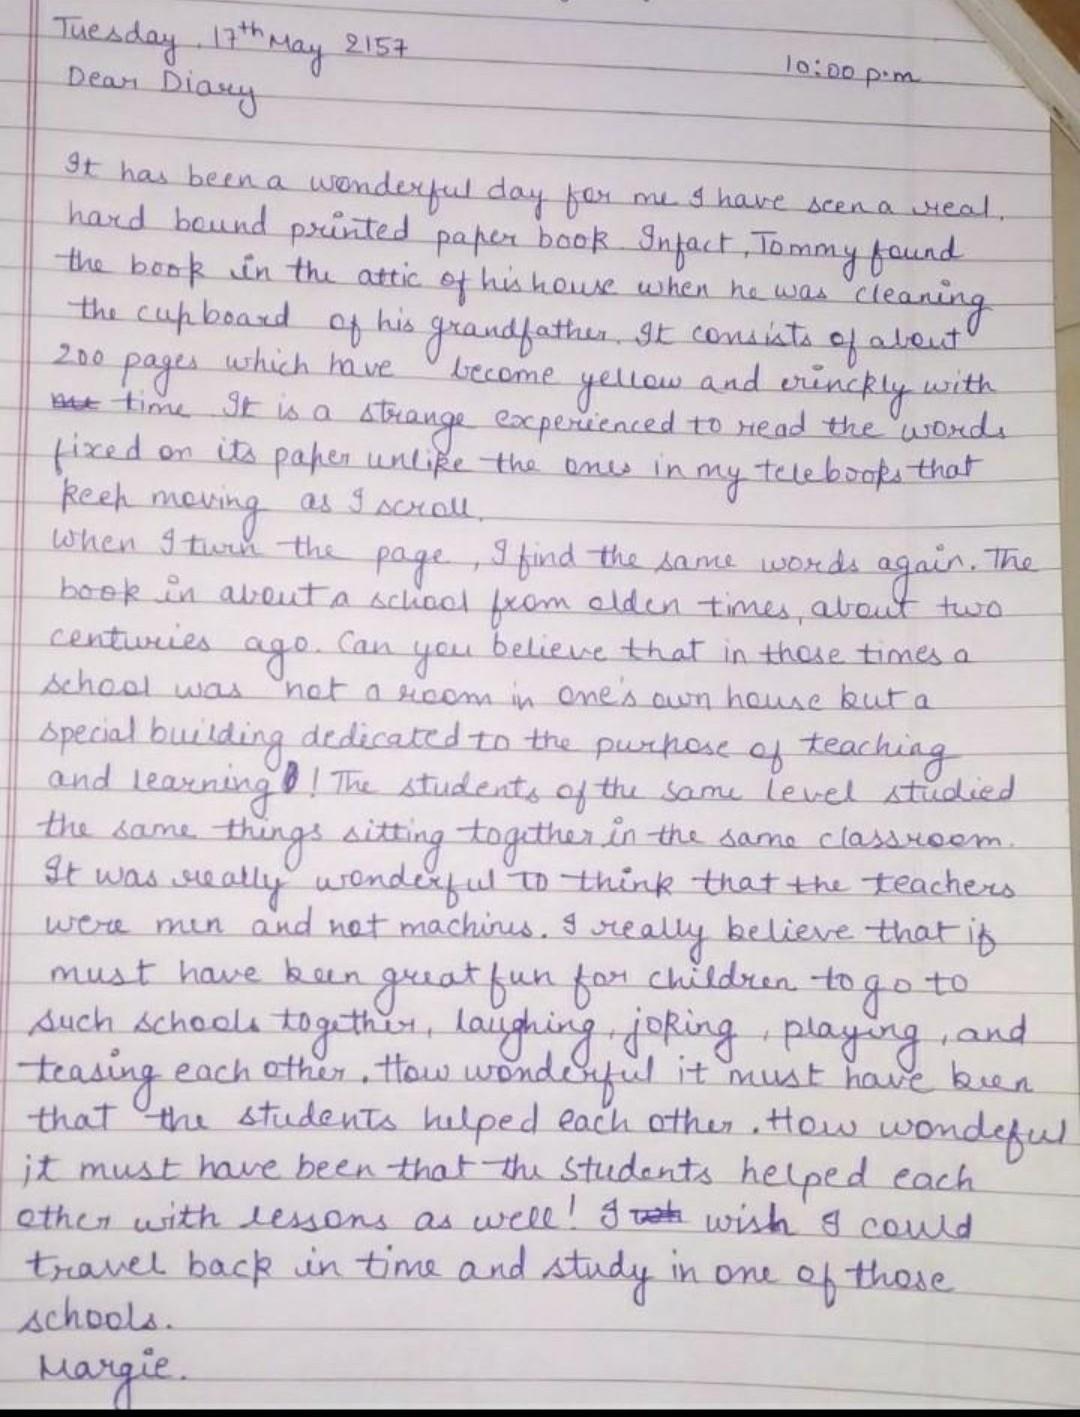 Tuesday, 17th May 2157
10:00 p.m
Dear Diary
It has been a wonderful day for me I have seen a real,
hard bound printed paper book Infact, Tommy found
the book in the attic of his house when he was cleaning
the cupboard of his grandfather. It consists of about
200 pages which have become yellow and crinckly with
time It is a strange experienced to read the words
fixed on its paper unlike the ones in my telebooks that
keep moving as I scroll.
When I turn the page, I find the same words again. The
book in about a school from olden times, about two
centuries ago. Can you believe that in those times a
school was not a room in one's own house but a
special building dedicated to the purpose of teaching
and learning! The students of the same level studied
the same things sitting together in the same classroom.
It was really wonderful to think that the teachers
were men and not machines. I really believe that it
must have been great fun for children to go to
such schools together, laughing, joking, playing, and
teasing each other. How wonderful it must have been
that the students helped each other. How wondeful
it must have been that the students helped each
other with lessons as well! I wish I could
travel back in time and study in one of those
schools.
Margie.